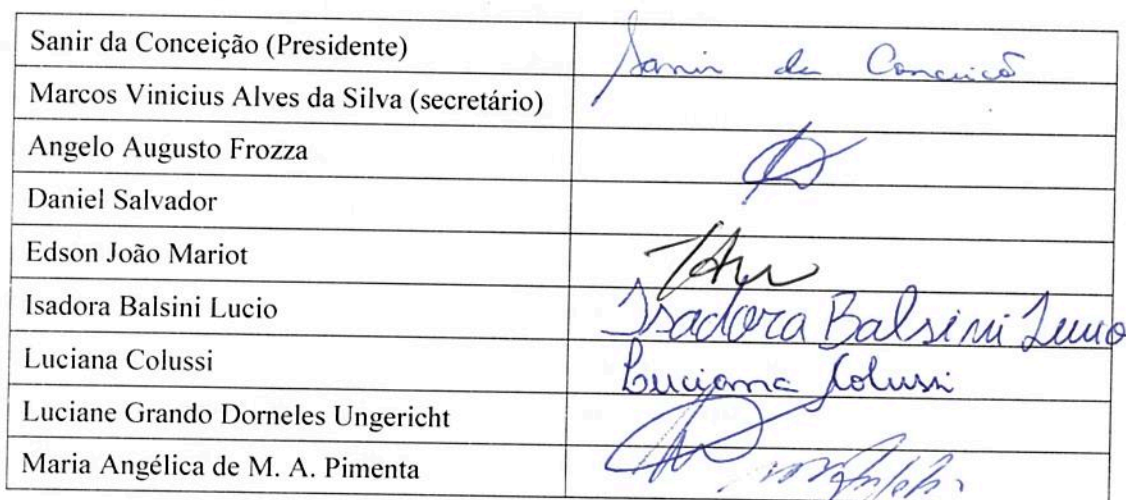 Sanir da Conceição (Presidente) Sanir da Conceicõ
Marcos Vinicius Alves da Silva (secretário)
Angelo Augusto Frozza
Daniel Salvador
Edson João Mariot
Isadora Balsini Lucio Isadora Balsini Lucio
Luciana Colussi Luciana Colussi
Luciane Grando Dorneles Ungericht
Maria Angélica de M. A. Pimenta